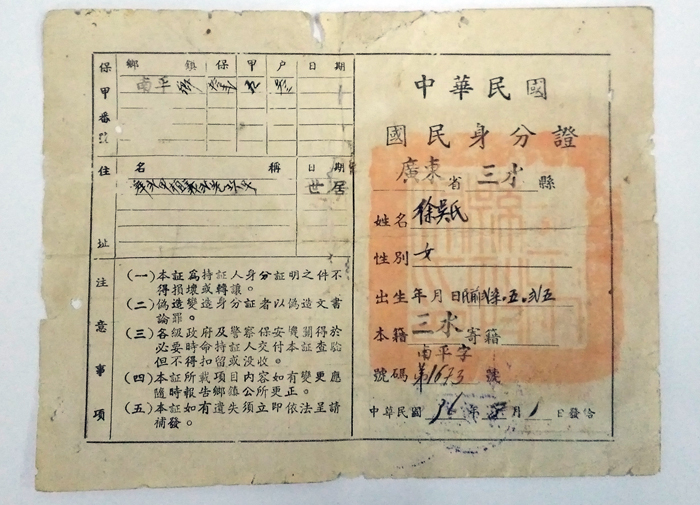 中華民國
國民身分證
廣東省三水縣
姓名 徐吳氏
性別 女
出生年月日 民前
本籍 三水 寄籍
南平字
號碼 第1673號
中華民國36年 月1日發給
保甲番號
鄉鎮 保 甲 戶 日期
南平
住址
名稱 日期
世居
注意事項
(一)本証為持証人身分証明之件不
得損壞或轉讓。
(二)偽造變造身分証者以偽造文書
論罪。
(三)各級政府及警察保安機關得於
必要時命持証人交付本証查驗
但不得扣留或沒收。
(四)本証所載項目內容如有變更應
隨時報告鄉鎮公所更正。
(五)本証如有遺失須立即依法呈請
補發。